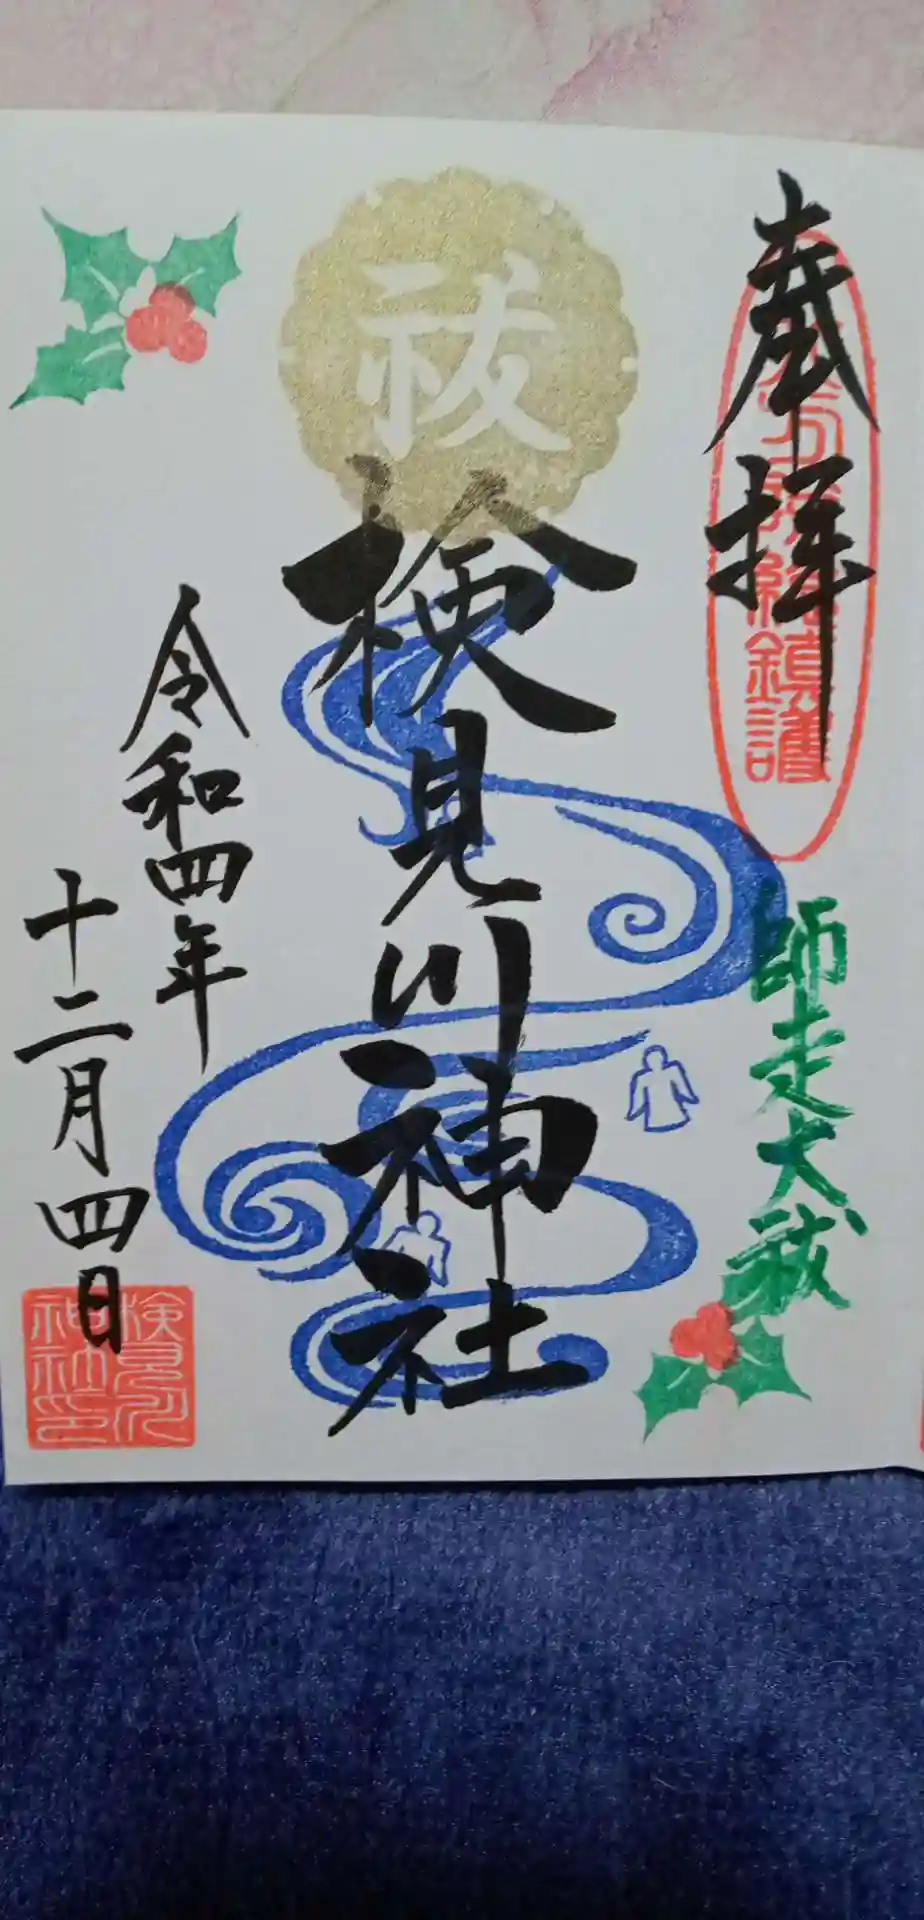 奉拝
師走大祓
祓
検見川神社
令和四年
十二月四日
検見川
神社印